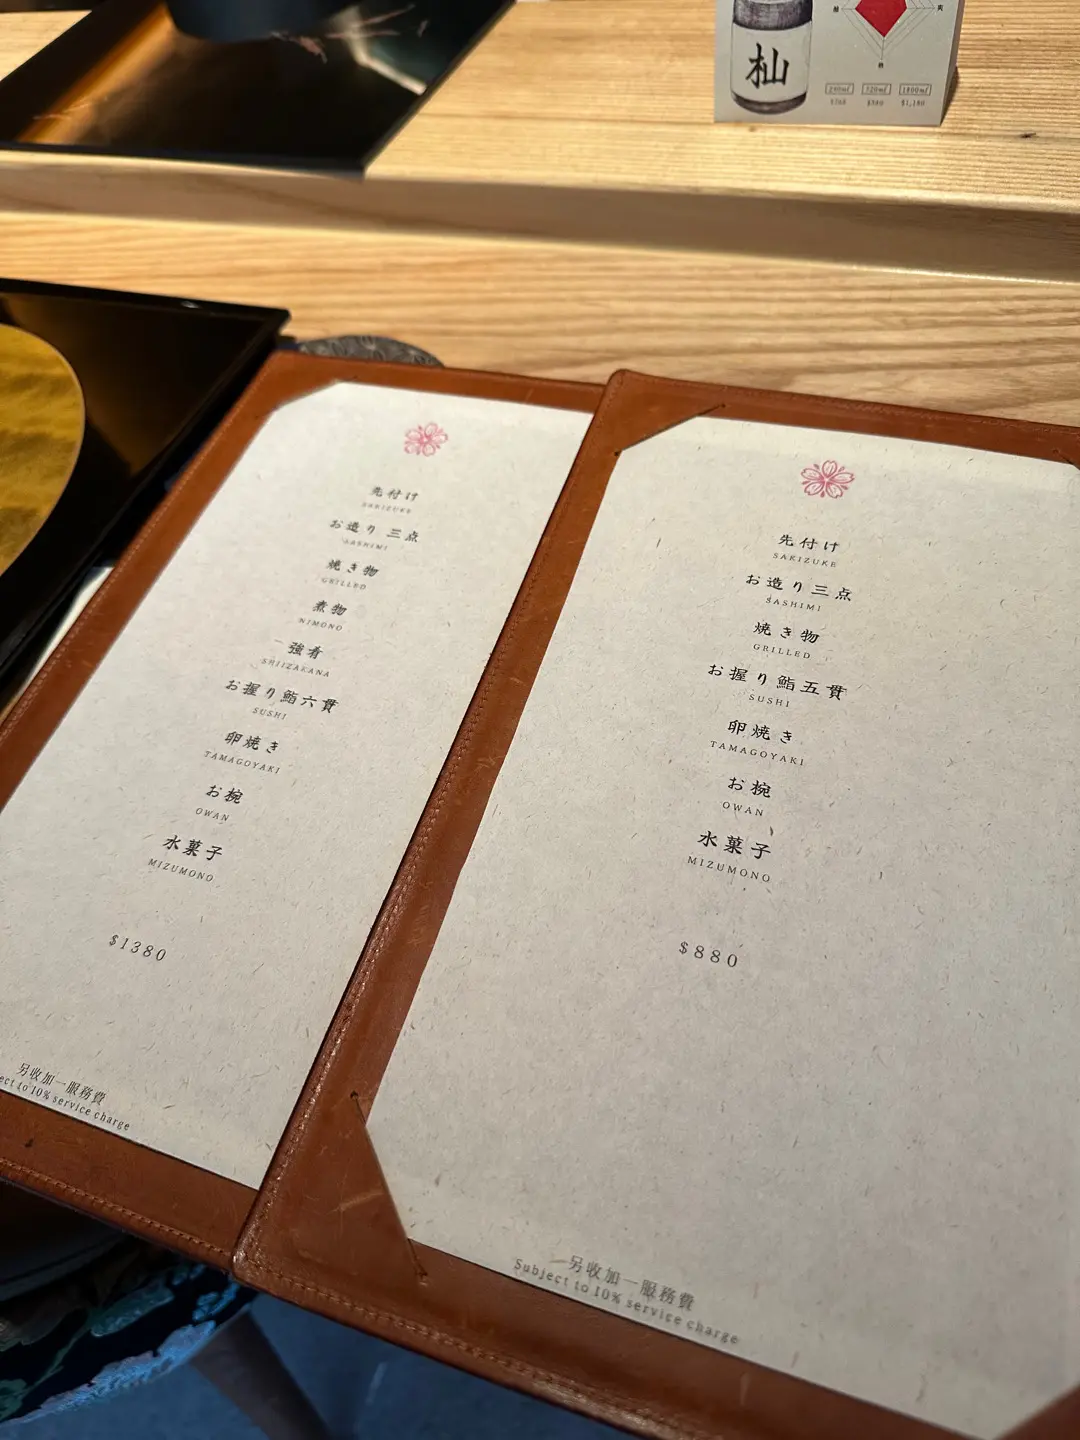 杣
290ml 720ml 1800ml
$580 $1,180
先付け
SAKIZUKE
お造り 三点
SASHIMI
焼き物
GRILLED
煮物
NIMONO
強肴
SHIIZAKANA
お握り鮨六貫
SUSHI
卵焼き
TAMAGOYAKI
お椀
OWAN
水菓子
MIZUMONO
$1380
另收加一服務費
ect to 10% service charge
先付け
SAKIZUKE
お造り三点
SASHIMI
焼き物
GRILLED
お握り鮨五貫
SUSHI
卵焼き
TAMAGOYAKI
お椀
OWAN
水菓子
MIZUMONO
$880
另收加一服務費
Subject to 10% service charge